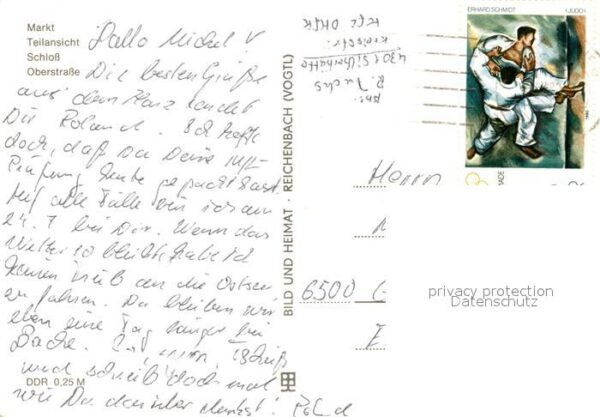 Markt
Teilansicht
Schloß
Oberstraße
Hallo Michel!
Die besten Grüße
aus dem Harz sendet
Dir Roland. Ich hoffe
doch, daß Du Deine
Prüfung heute gepackt hast.
Auf alle Fälle bin ich am
24.7 bei Dir. Wenn das
Wetter so bleibt habe ich
keinen an die Ostsee
zu fahren. Da bleiben wir
eben eine Tag länger bei
Dache.
und schreib doch mal
wie Du darüber denkst!
DDR 0,25 M
BILD UND HEIMAT · REICHENBACH (VOGTL)
Abs.
R. Fuchs
4301 Silberhütte
ERHARD SCHMIDT
»JUDO«
1988
Herrn
6500 G
privacy protection
Datenschutz